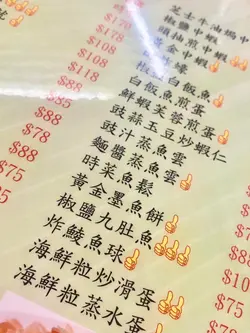 芝士牛油焗中
椒鹽中蝦
頭抽煎中蝦
黃金中蝦
椒鹽白飯魚
白飯魚煎蛋
鮮蝦芙蓉煎蛋
豉蒜玉豆炒蝦仁
豉汁蒸魚雲
麵醬蒸魚雲
時菜魚鬆
黃金墨魚餅
椒鹽九肚魚
炸鯪魚球
海鮮粒炒滑蛋
海鮮粒蒸水蛋
$178
$108
$108
$118
$88
$85
$88
$78
$88
$75
$88